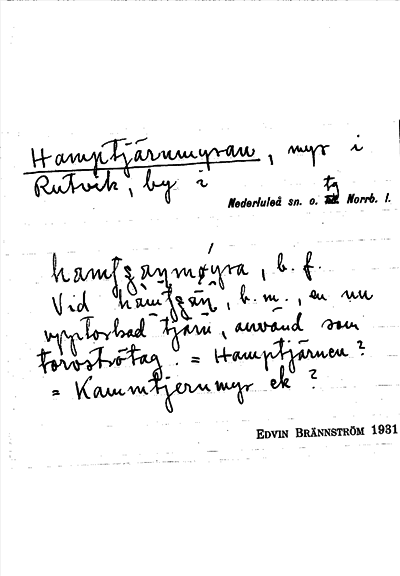 Hamptjärnmyran, myr i
Rutvik, by i
Nederluleå sn. o. tg Norrb. l.
hamtʒäṇmøýra, b. f.
Vid hàmtʒäṇ, b. m., en nu
upptorkad tjärn, använd som
torvströtag. = Hamptjärnen?
= Kammtjernmyr ek?
EDVIN BRÄNNSTRÖM 1931